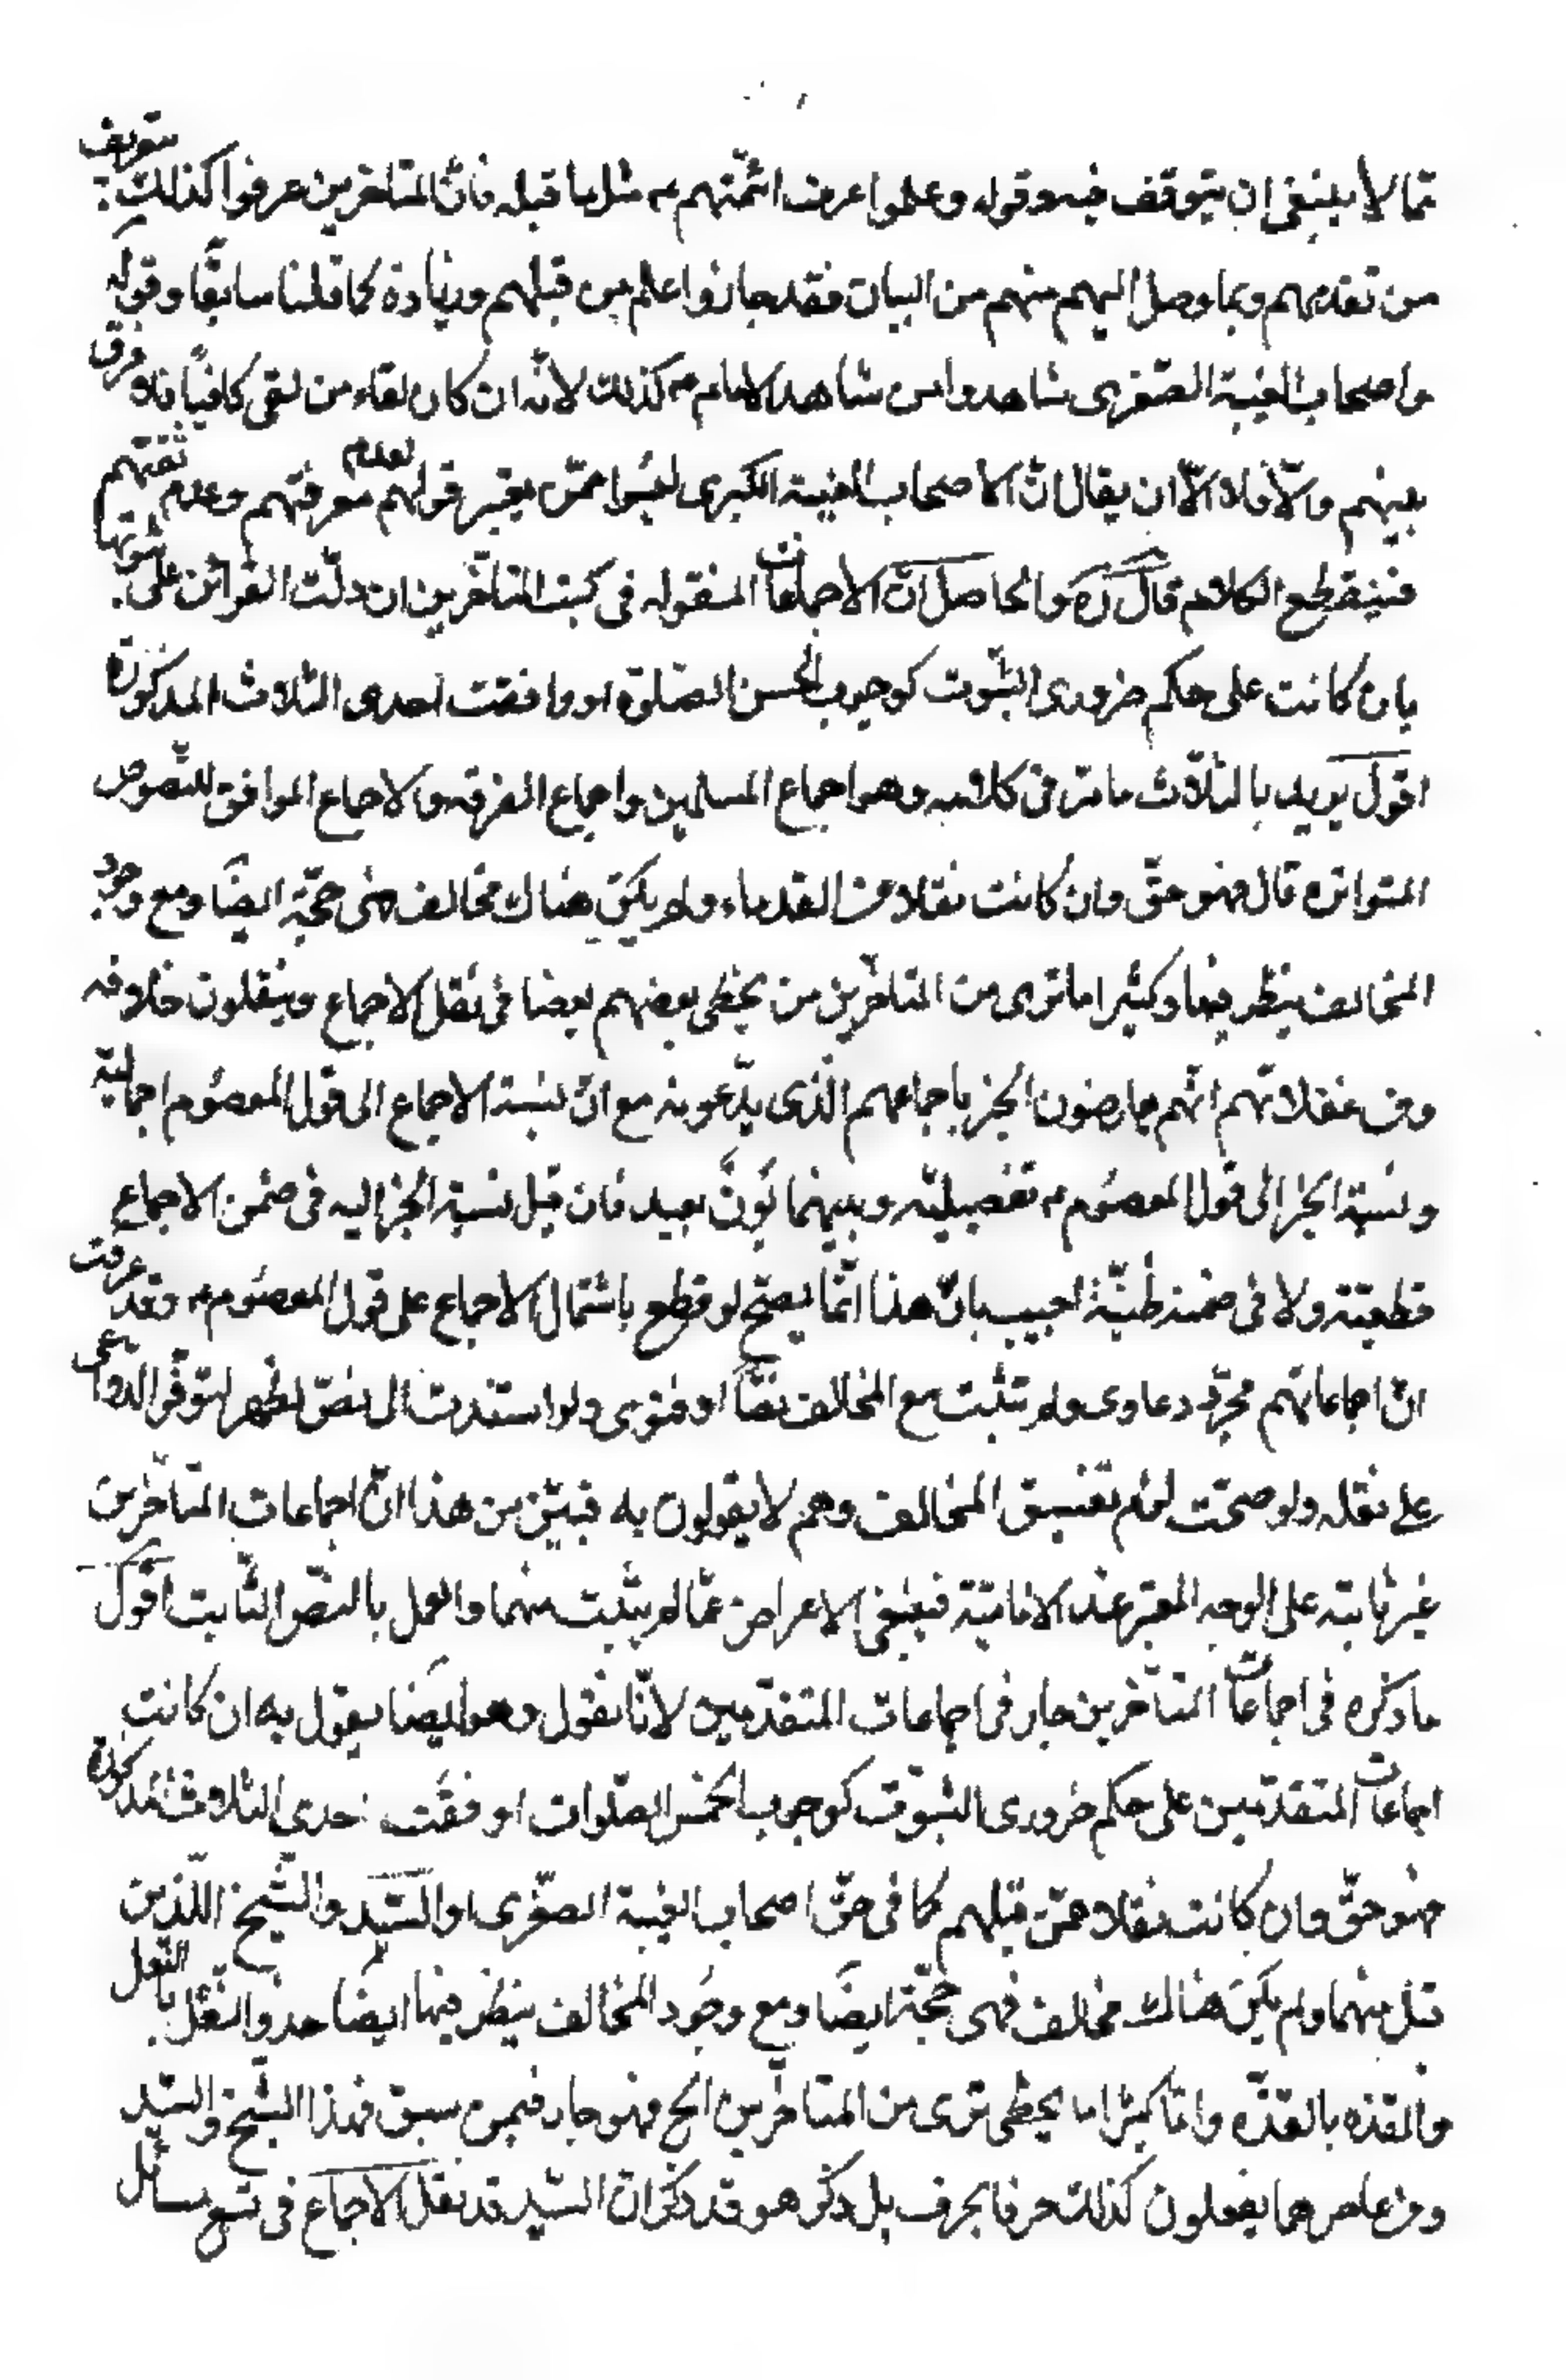 مما لا ينبغي ان يتوقف فيه وقوله وعلموا عرف ائمّتهم ع مثل ما قبله فانّ المتاخرين عرفوا كذلك بتعريف
من تقدمهم وبما وصل اليهم منهم من البيان فقد حازوا علم من قبلهم وزيادة كما قلنا سابقًا وقوله
واصحاب الغيبة الصّغرى شاهدوا من شاهد الامام ع كذلك لانّه ان كان لقاء من لقى كافيًا فلا فرق
بينهم والّا فلا الّا ان يقال انّ اصحاب الغيبة الكبرى ليسوا ممّن يعتبر قولهم لعدم معرفتهم وعدم ثقتهم
فينقطع الكلام قال ره والحاصل انّ الاجماعات المنقوله في كتب المتاخّرين ان دلّت القرائن على ثبوتها
بان كانت على حكم ضرورى الثبوت كوجوب الخمس الصّلوة او وافقت احدى الثلاث المذكورة
اقول يريد بالثلاث ما مرّ في كلامه وهو اجماع المسلمين واجماع الفرقه والاجماع الموافق للنّصوص
المتواتره قال فهو حقّ وان كانت نقلا عن القدماء ولم يكن هناك مخالف فهى حجّة ايضًا ومع وجود
المخالف ينظر فيها وكثيرا ما ترى من المتاخّرين من يخطى بعضهم بعضا في نقل الاجماع وينقلون خلافه
ومن غفلاتهم انّهم يعارضون الخبر باجماعهم الّذى يدّعونه مع انّ نسبة الاجماع الى قول المعصوم اجمالية
ونسبة الخبر الى قول المعصوم ع تفصيليّه وبينهما بَونٌ بعيد فان قيل نسبة الخبر اليه في ضمن الاجماع
قطعيّة ولا في ضمنه ظنيّة اجيب بانّ هذا انّما يصحّ لو قطع باشتمال الاجماع على قول المعصوم ع وقد عرفت
انّ اجماعاتهم مجرّد دعاوى ولم تثبت مع المخالف نصًّا او فتوى ولو استندت الى نصّ لظهر لتوفّر الدّواعى
على نقله ولو صحّت لزم تفسيق المخالف وهم لا يقولون به فبيّن من هذا انّ اجماعات المتاخّرين
غير ثابته على الوجه المعتبر عند الاماميّة فينبغى الاعراض عمّا لم يثبت منهما والعمل بالنصّ الثابت اقول
ما ذكره في اجماعات المتاخّرين جار في اجماعات المتقدّمين لانّا نقول وهو ايضا يقول به ان كانت
اجماعات المتقدّمين على حكم ضرورى الثبوت كوجوب الخمس الصّلوات او وفقت احدى الثلاث المذكورة
فهو حقّ وان كانت نقلا عمّن قبلهم كما في حقّ اصحاب الغيبة الصّغرى او السّيّد والشّيخ اللّذين
قبل منهما ولم يكن هناك مخالف فهى حجّة ايضًا ومع وجود المخالف ينظر فيها ايضًا حذو النّعل بالنّعل
والقذه بالقذّه وامّا كثيرا ما يخطى ترى من المتاخّرين الخ فهو جار فيمن سبق فهذا الشّيخ والسّيّد
ومن عاصرهما يفعلون كذلك حرفا بحرف بل ذكر هو قد ذكر انّ السّيّد قد نقل الاجماع في تسع مسائل